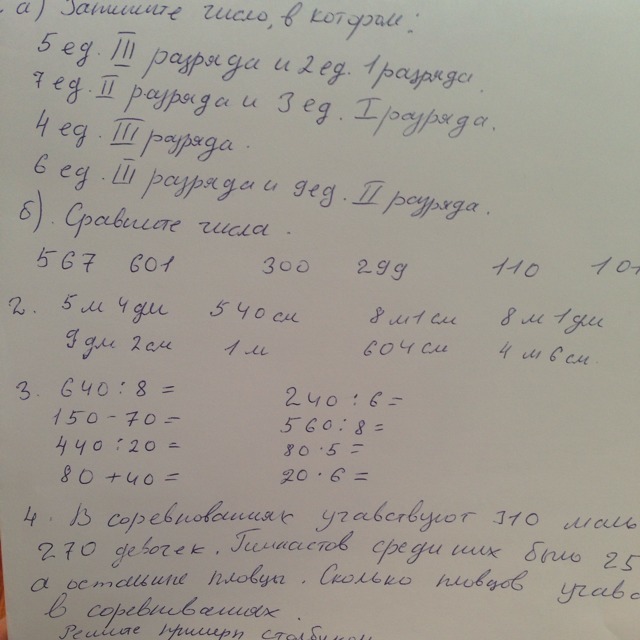 а) Запишите число, в котором:
5 ед. III разряда и 2 ед. 1 разряда.
7 ед. II разряда и 3 ед. I разряда.
4 ед. III разряда.
6 ед. III разряда и 9 ед. II разряда.
б). Сравните числа.
567 601 300 299 110 101
2. 5 м 4 дм 540 см 8 м 1 см 8 м 1 дм
9 дм 2 см 1 м 604 см 4 м 6 см.
3. 640 : 8 = 240 : 6 =
150 - 70 = 560 : 8 =
440 : 20 = 80 · 5 =
80 + 40 = 20 · 6 =
4. В соревнованиях учавствуют 310 маль
270 девочек. Гимнастов среди них было 25
а остальные пловцы. Сколько пловцов учавс
в соревнованиях.
Решите примеры столбиком